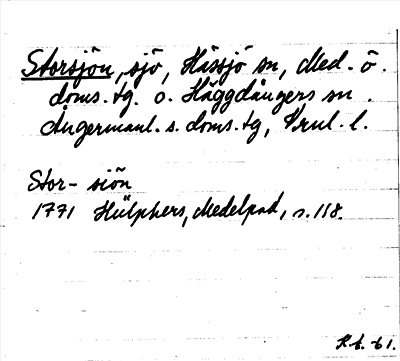 Storsjön, sjö, Hässjö sn, Med. ö.
doms. tg. o. Häggdångers sn.
Ångermanl. s. doms. tg, Vnul. l.
Stor- siön
1771 Hülphers, Medelpad, s. 118.